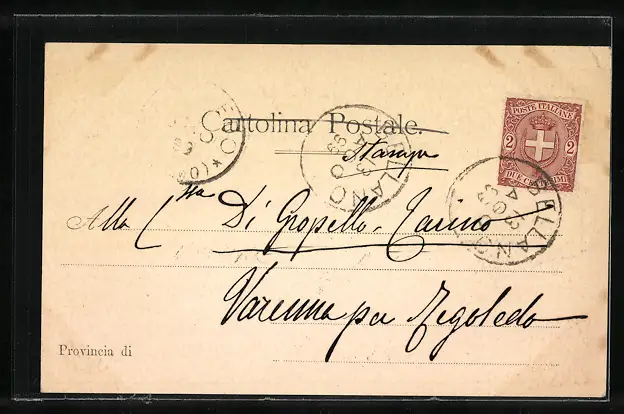 Cartolina Postale.
Stampe
POSTE ITALIANE
2 2
DUE CENTESIMI
BELLANO
BELLANO
Alla C.ssa Di Gropello-Tarino
Varenna per Regoledo
Provincia di